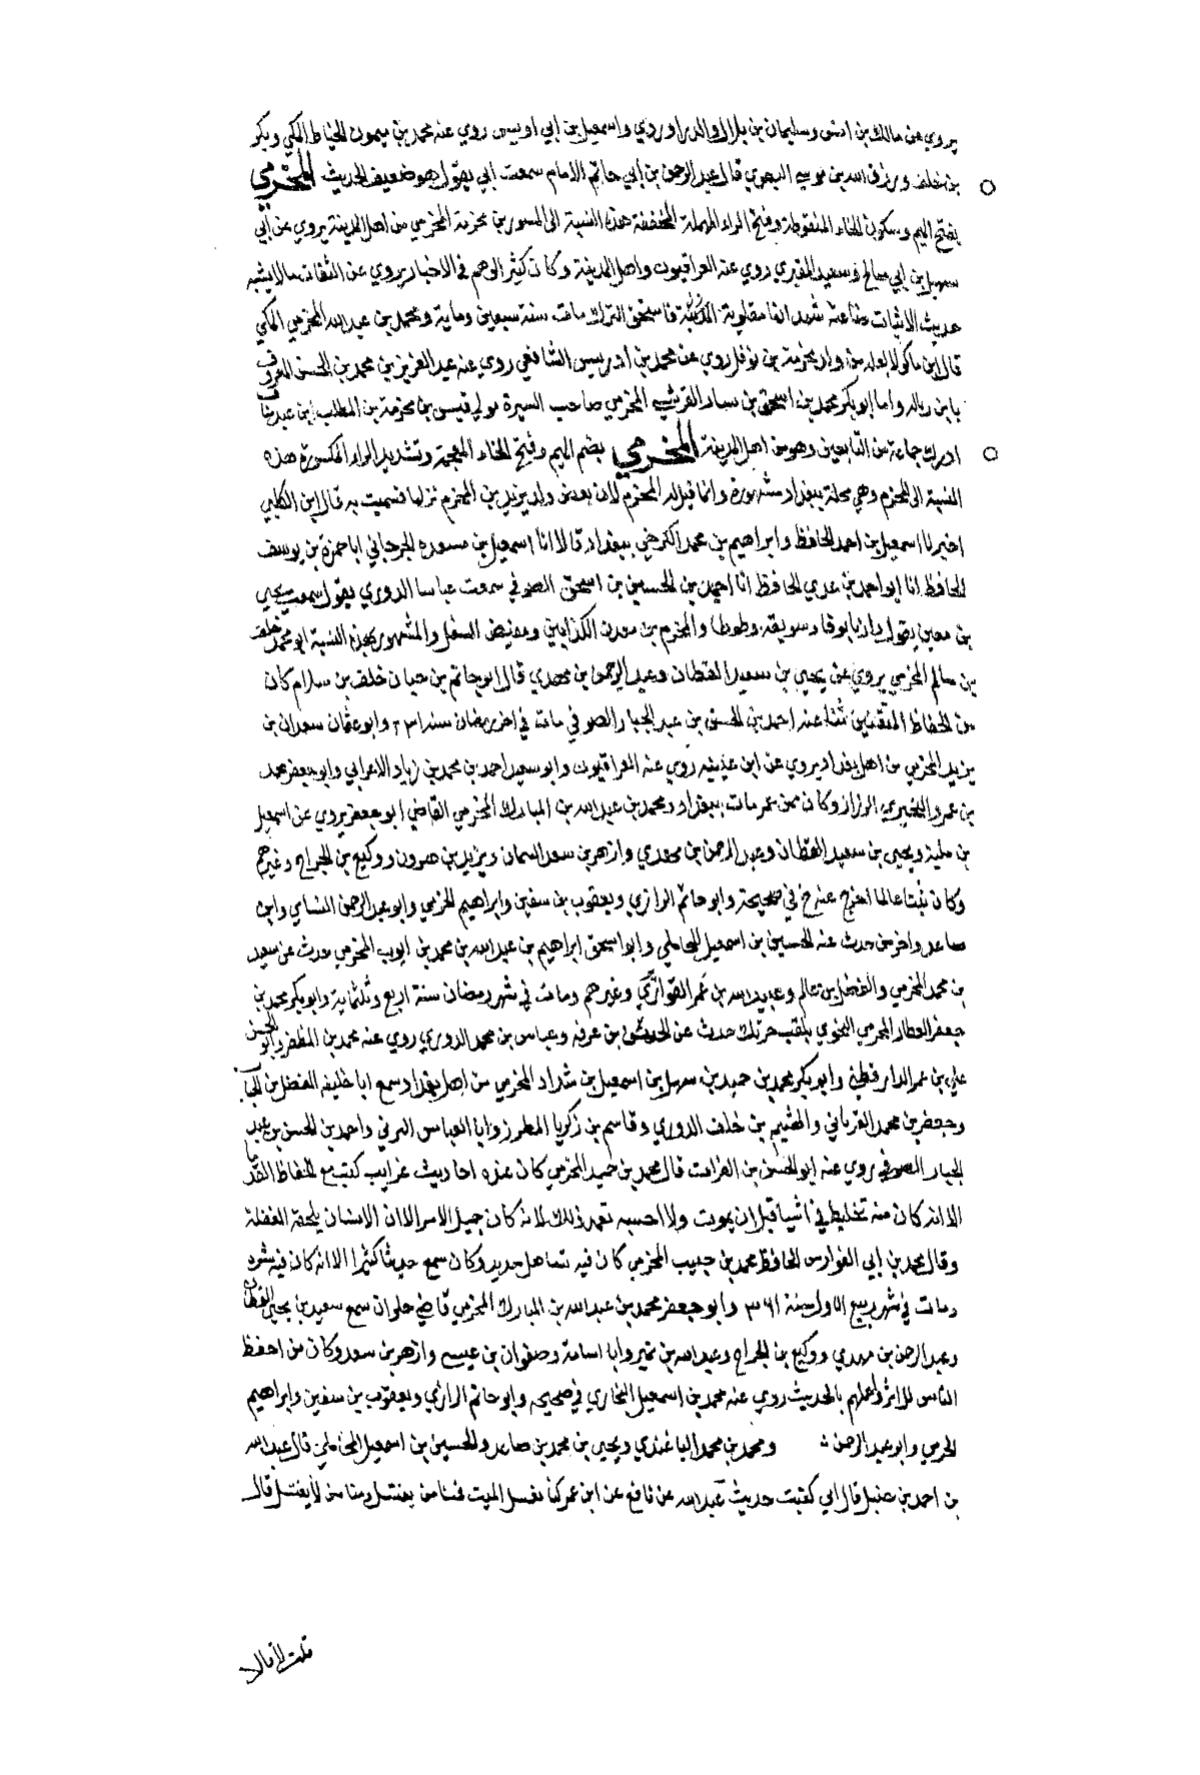 يروي عن مالك بن انس وسليمان بن بلال والدراوردي واسمعيل بن ابي اويس روي عنه محمد بن ميمون الخياط المكي وبكر
بن خلف ورزق الله بن موسي البصري قال عبد الرحمن بن ابي حاتم الامام سمعت ابي يقول هو ضعيف الحديث المخرمي
بفتح الميم وسكون الخاء المنقوطة وفتح الراء المهملة المخففة هذه النسبة الى المسور بن مخرمة المخرمي من اهل المدينة يروي عن ابي
سهيل بن ابي صالح وسعيد المقبري روي عنه العراقيون واهل المدينة وكان كثير الوهم في الاخبار يروي عن الثقات ما لا يشبه
حديث الاثبات شهد انها مقلوبة فاستحق الترك مات سنة سبعين ومايه ومحمد بن عبد الله المخرمي المكي
قال ابن ماكولا لعله من ولد مخرمة بن نوفل روي عن محمد بن ادريس الشافعي روي عنه عبد العزيز بن محمد بن الحسن المعروف
بابن زباله واما ابو بكر محمد بن اسحق بن يسار القرشي المخرمي صاحب السيرة مولي قيس بن مخرمة بن المطلب بن عبد مناف
ادرك جماعة من التابعين وهو من اهل المدينة المخرمي بضم الميم وفتح الخاء المعجمة وتشديد الراء المكسورة هذه
النسبة الى المخرم وهي محلة ببغداد مشهورة وانما قيل له المخرم لان بعض ولد يزيد بن المخرم نزلها فسميت به قال ابن الكلبي
اخبرنا اسمعيل بن احمد الحافظ وابراهيم بن محمد الكرخي ببغداد قالا انا اسمعيل بن مسعده الجرجاني ابا حمزة بن يوسف
الحافظ انا ابو احمد بن عدي الحافظ انا احمد بن الحسين بن اسحق الصوفي سمعت عباسا الدوري يقول سمعت يحيي
بن معين يقول وطوطا والمخرم من معدن الكذابين ومفيض السفل والمشهور بهذه النسبة ابو محمد خلف
بن سالم المخرمي يروي عن يحيي بن سعيد القطان وعبد الرحمن بن مهدي قال ابو حاتم بن حبان خلف بن سلام كان
من الحفاظ المتقنين ثنا عنه احمد بن الحسن بن عبد الجبار الصوفي مات في اخر رمضان سنه ٢٣١ وابو عثمان سعدان بن
يزيد المخرمي من اهل بغداد يروي عن ابن عيينه روي عنه العراقيون وابو سعيد احمد بن محمد بن زياد الاعرابي وابو جعفر محمد
بن عمرو البختري الرزاز وكان ممن عمر مات ببغداد ومحمد بن عبد الله بن المبارك المخرمي القاضي ابو جعفر يروي عن اسمعيل
بن علية ويحيى بن سعيد القطان وعبد الرحمن بن مهدي وازهر بن سعد السمان ويزيد بن هرون ووكيع بن الجراح وغيرهم
وكان ثبتا عالما اخرج عنه خ في صحيحه وابو حاتم الرازي ويعقوب بن سفين وابراهيم الحربي وابو عبد الرحمن النساي وابن
صاعد واخر من حدث عنه الحسين بن اسمعيل المحاملي وابو اسحق ابراهيم بن عبد الله بن محمد بن ايوب المخرمي حدث عن سعيد
بن محمد المخرمي والفضل بن غانم وعبيد الله بن عمر القواريري وغيرهم ومات في شهر رمضان سنة اربع وثلثماية وابو بكر محمد بن
جعفر العطار المخرمي النحوي يلقب خرتك حدث عن الحسن بن عرفه وعباس بن محمد الدوري روي عنه محمد بن المظفر وابو الحسن
علي بن عمر الدارقطني وابو بكر محمد بن حميد بن سهيل بن اسمعيل بن شداد المخرمي من اهل بغداد سمع ابا خليفه الفضل بن الحباب
وجعفر بن محمد الفريابي والهيثم بن خلف الدوري وقاسم بن زكريا المطرز وابا العباس البرتي واحمد بن الحسن بن عبد
الجبار الصوفي روي عنه ابو الحسن بن الفرات قال محمد بن حميد المخرمي كان عنده احاديث غرايب كتب مع الحفاظ القدما
الا انه كان منه تخليط في اشيا قبل ان يموت ولا احسبه تعمد ذلك لانه كان جميل الامر الا ان الانسان يلحقه الغفلة
وقال محمد بن ابي الفوارس الحافظ محمد بن حميد المخرمي كان فيه تساهل شديد وكان سمع حديثا كثيرا الا انه كان فيه شره
ومات في شهر ربيع الاول سنة ٣٦١ وابو جعفر محمد بن عبد الله بن المبارك المخرمي قاضي حلوان سمع سعيد بن يحيى القطان
وعبد الرحمن بن مهدي ووكيع بن الجراح وعبد الله بن نمير وابا اسامة وصفوان بن عيسي وازهر بن سعد وكان من احفظ
الناس للاثر واعلمهم بالحديث روي عنه محمد بن اسمعيل البخاري في صحيحه وابو حاتم الرازي ويعقوب بن سفين وابراهيم
الحربي وابو عبد الرحمن ن ومحمد بن محمد الباغندي ويحيى بن محمد بن صاعد والحسين بن اسمعيل المحاملي قال عبد الله
بن احمد بن حنبل قال ابي كتبت حديث عبيد الله عن نافع عن ابن عمر كنا نغسل الميت فمنا من يغتسل ومنا من لا يغتسل قال
قلت لا قال لا